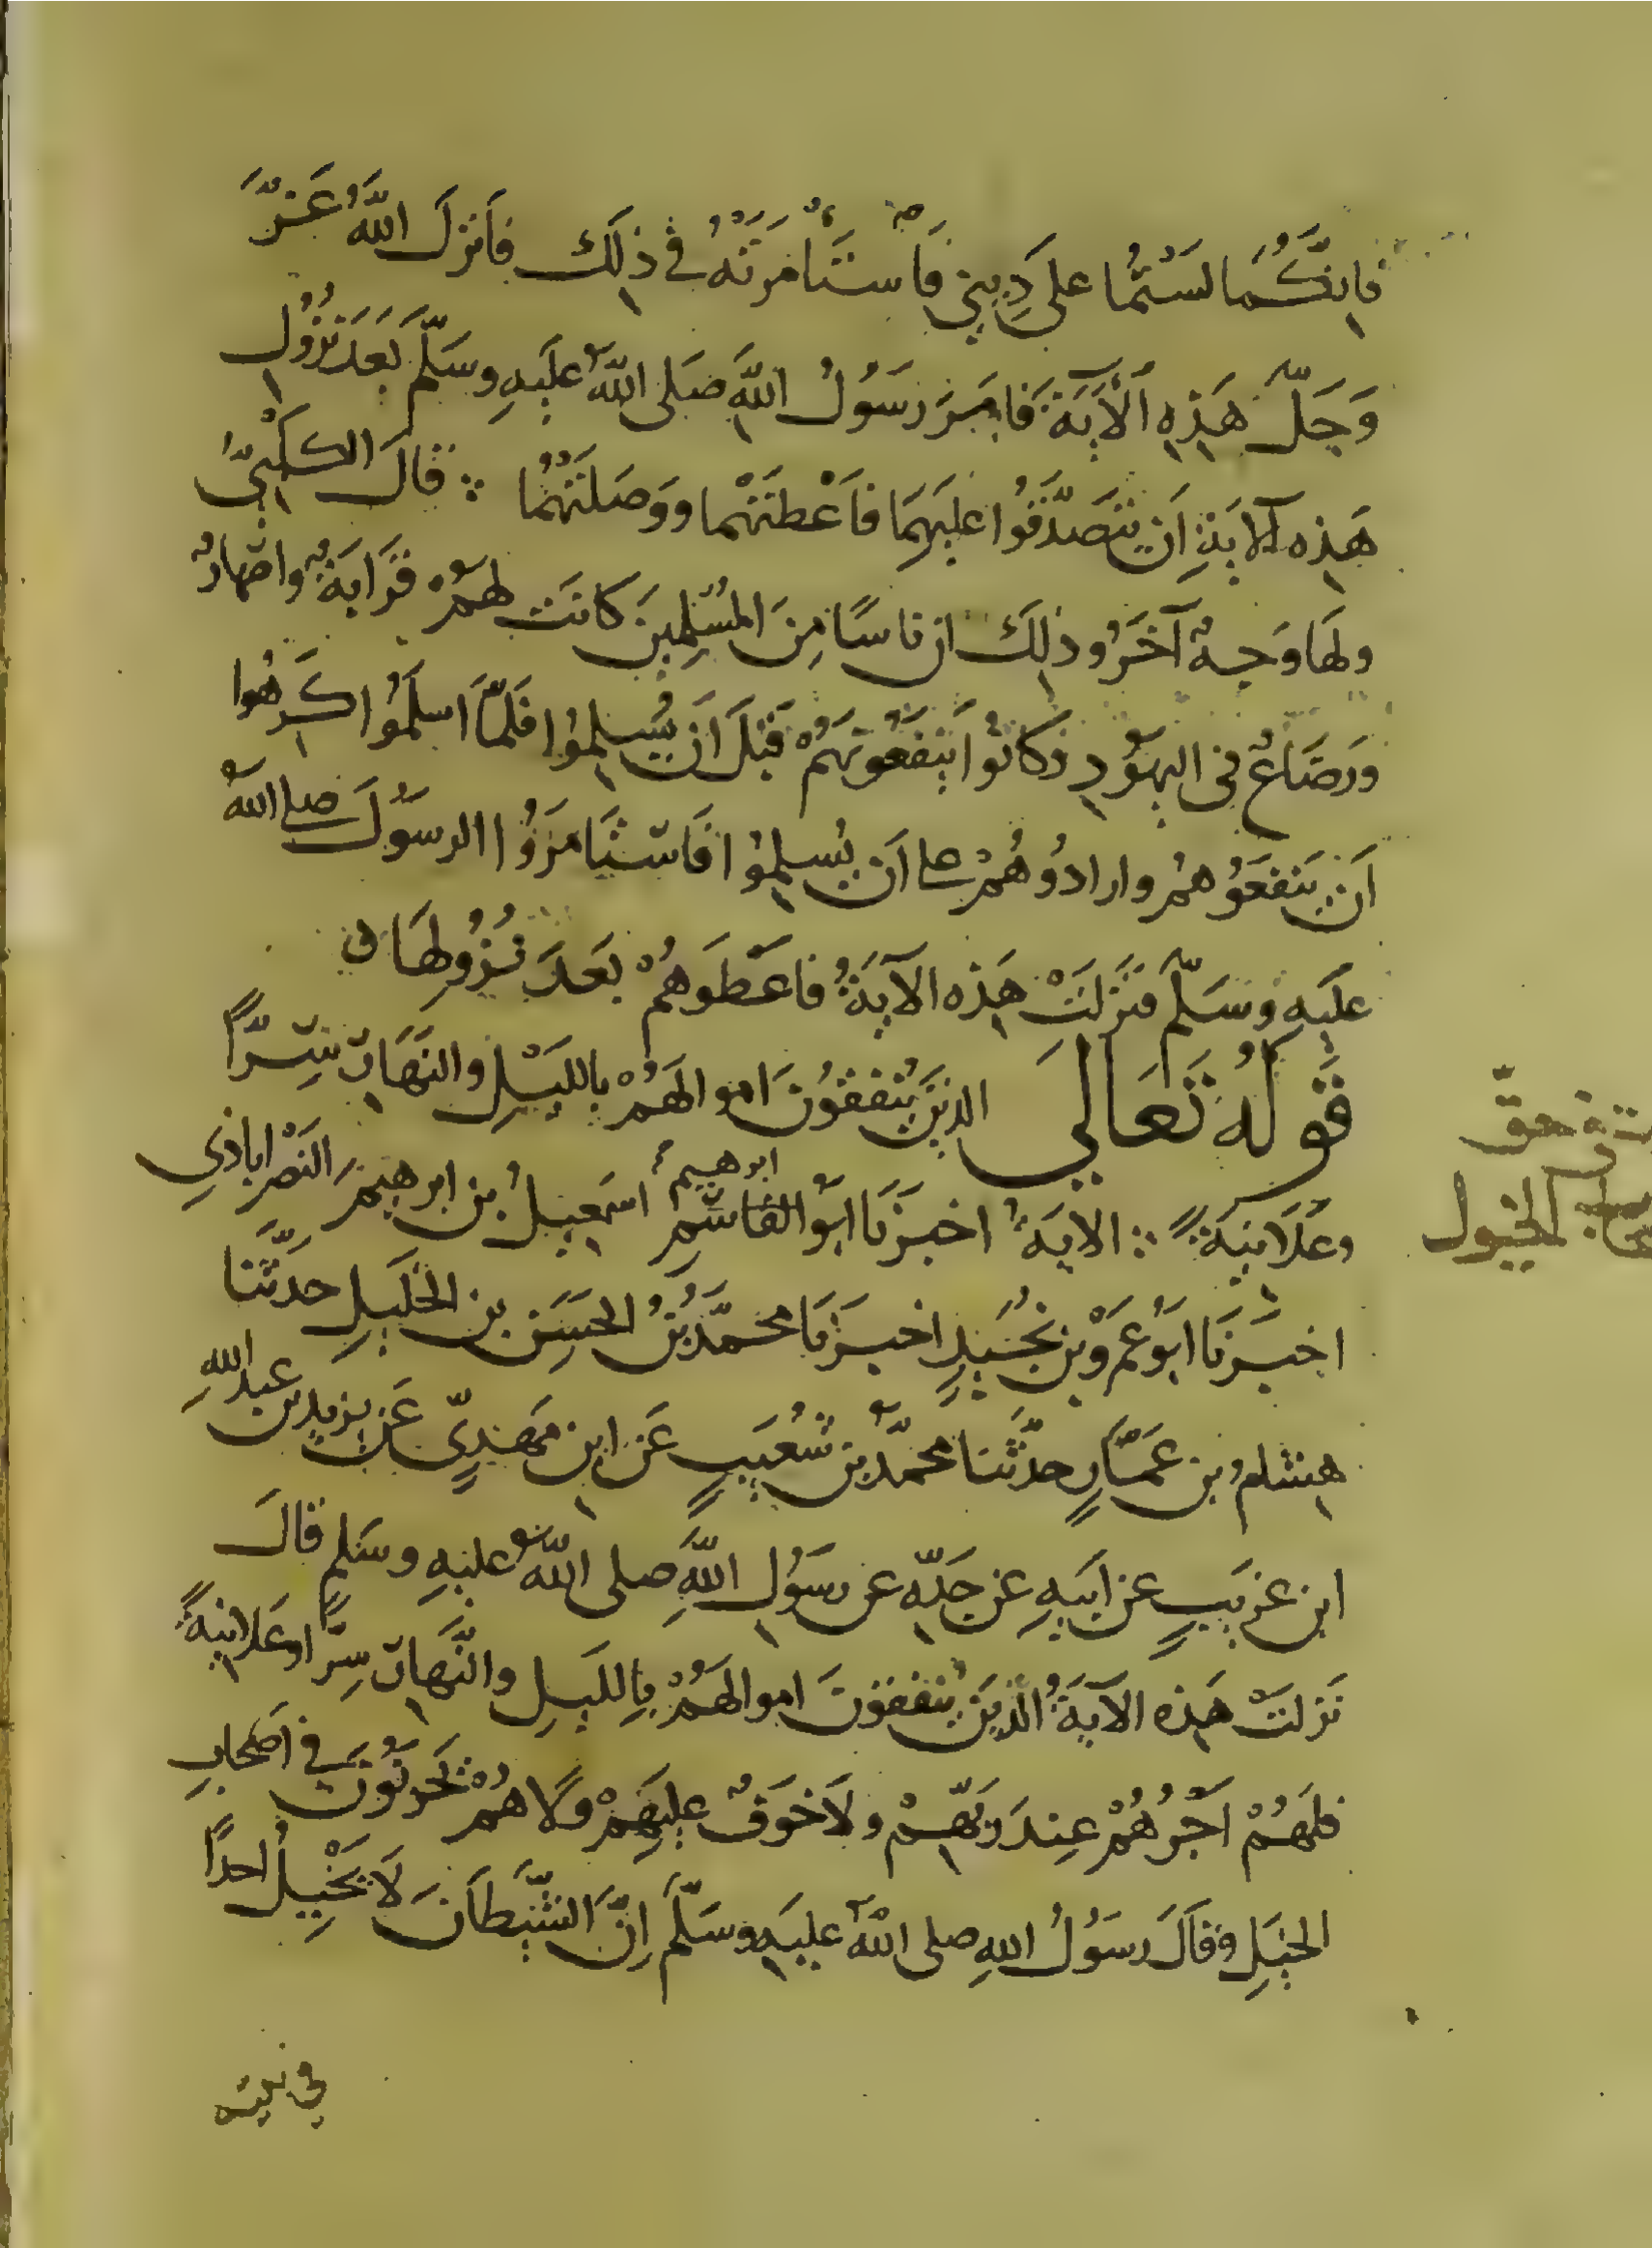 فَإِنَّكُمَا لَسْتُمَا عَلَى دِينِي فَاسْتَأْمَرَتْهُ فِي ذَلِكَ فَأَنْزَلَ اللَّهُ عَزَّ
وَجَلَّ هَذِهِ الْآيَةَ فَأَمَرَ رَسُولُ اللَّهِ صَلَى اللَّهُ عَلَيْهِ وسَلَّمَ بَعْدَ نُزُولِ
هَذِهِ الآيَةِ أَن تَتَصَدَّقُوا عَلَيْهِمَا فَأَعْطَتْهُمَا وَوَصَلَتْهُمَا قَالَ الكَلْبِيُّ
ولَهَا وَجْهٌ آخَرُ وذَلِكَ ان نَاسًا مِنَ المُسْلِمِينَ كَانَت لَهُمْ قَرَابَةٌ وَاصْهَارٌ
وَرَضَاعٌ فى اليَهُودِ وَكَانُوا يَنْفَعُونَهُمْ قَبْلَ أَنْ يُسْلِمُوا فَلَمَّا اَسْلَمُوا كَرِهُوا
أَن يَنْفَعُوهُمْ وارادُوهُمْ على أَن يُسْلِمُوا فَاسْتَامَرُوا الرسُولَ صلى الله
عَلَيهِ وَسَلَّمَ فَنَزَلَتْ هَذِه الآيَةُ فَاعْطَوهُمْ بَعْدَ نُزُولِهَا
قَوْلُهُ تَعَالَى الذِينَ يُنْفِقُونَ اموالهُمْ بِالليْلِ والنَهَارِ سِرًّا
وعَلَانِيَةً الايَةُ اخبرَنَا ابُو القاسِم ابرهيم اسمعيلُ بن ابرهيمَ النَصْراباذي
اخبرَنَا ابُو عَمْرو بن نُجَيدٍ اخبَرَنَا محمّدُ بنُ الحسَن بن الخَلِيلِ حدَثَّنَا
هِشَامُ بن عَمَّارٍ حدَّثَنَا محمَّدُ بن شُعَيبٍ عَن ابن مَهْدِيٍّ عَن يزيد بن عبدالله
ابن عَرِيبٍ عن ابيهِ عن جَدِّه عن رسُولِ اللَّهِ صلى اللهُ عليهِ وسَلم قالَ
نَزَلَتْ هَذِه الآيَةُ الَّذينَ يُنْفِقونَ اموالهُمْ بِالليلِ والنَّهَارِ سِرًّا وعَلانِيَةً
فلَهُمْ أَجْرُهُمْ عِندَ رَبِّهِمْ ولَا خَوفٌ عليهِمْ وَلَا هُمْ يَحْزَنُونَ في أَصْحَابِ
الخَيلِ وَقَالَ رسُولُ اللهِ صلى اللهُ عليهِ وسَلَّمَ اِنَّ الشَّيْطَانَ لَا يَخْبِلُ احدًا
في بيته
الخيول